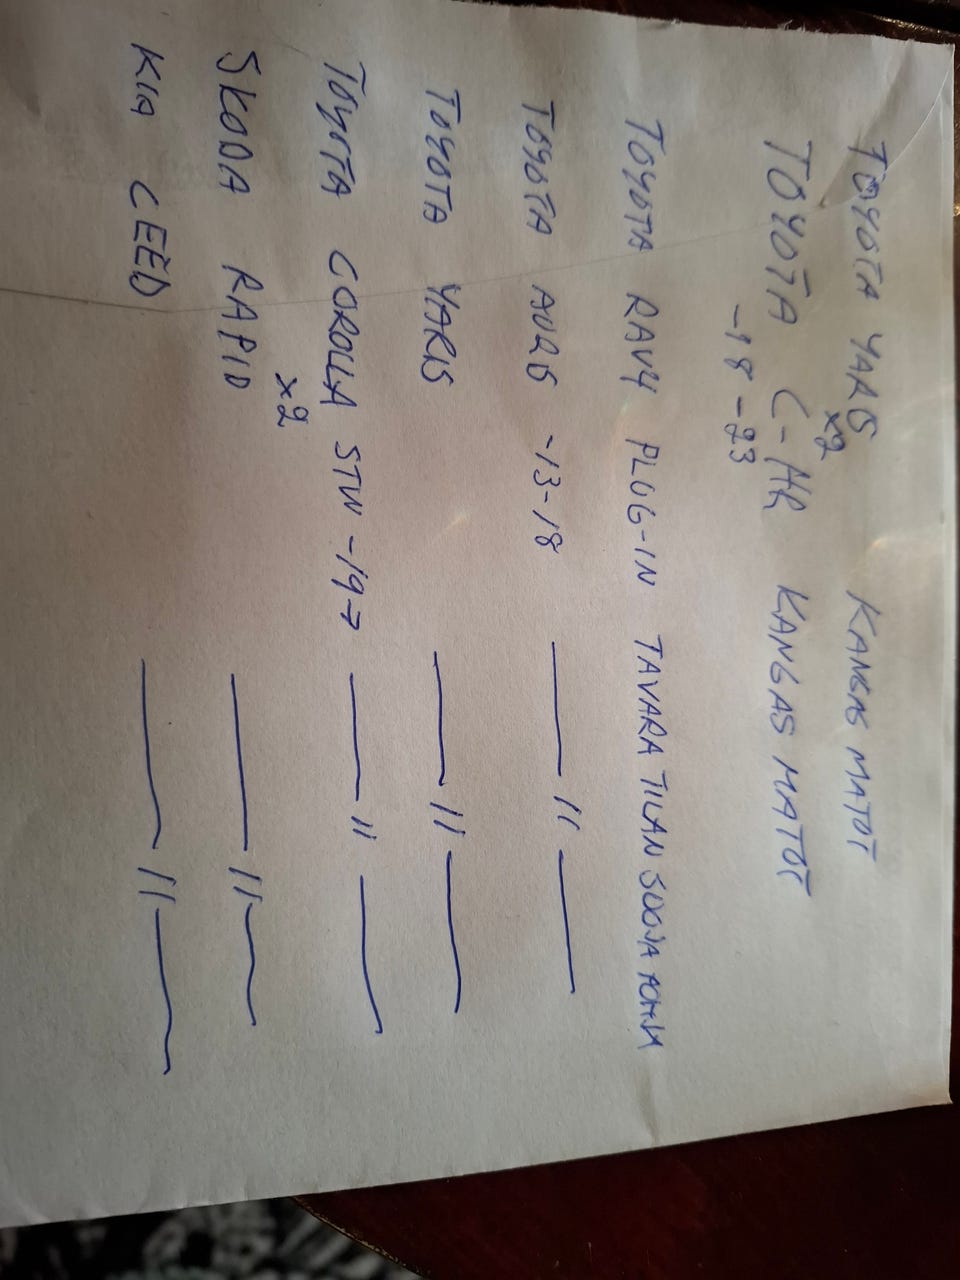 TOYOTA YARIS KANGAS MATOT
x2
TOYOTA C-HR KANGAS MATOT
-18 -23
TOYOTA RAV4 PLUG-IN TAVARA TILAN SUOJA POHJA
TOYOTA AURIS -13-18 — 11 —
TOYOTA YARIS — 11 —
TOYOTA COROLLA STW -19→ — 11 —
x2
SKODA RAPID — 11 —
KIA CEED — 11 —